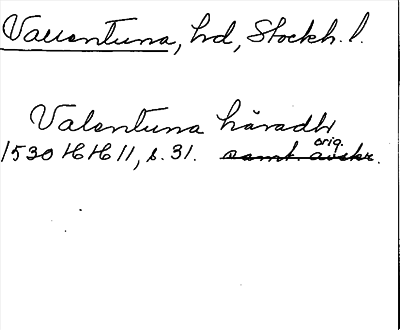 Vallentuna, hd, Stockh. l.
Valentuna häradh
orig.
1530 HH 11, s. 31. samt. avskr.